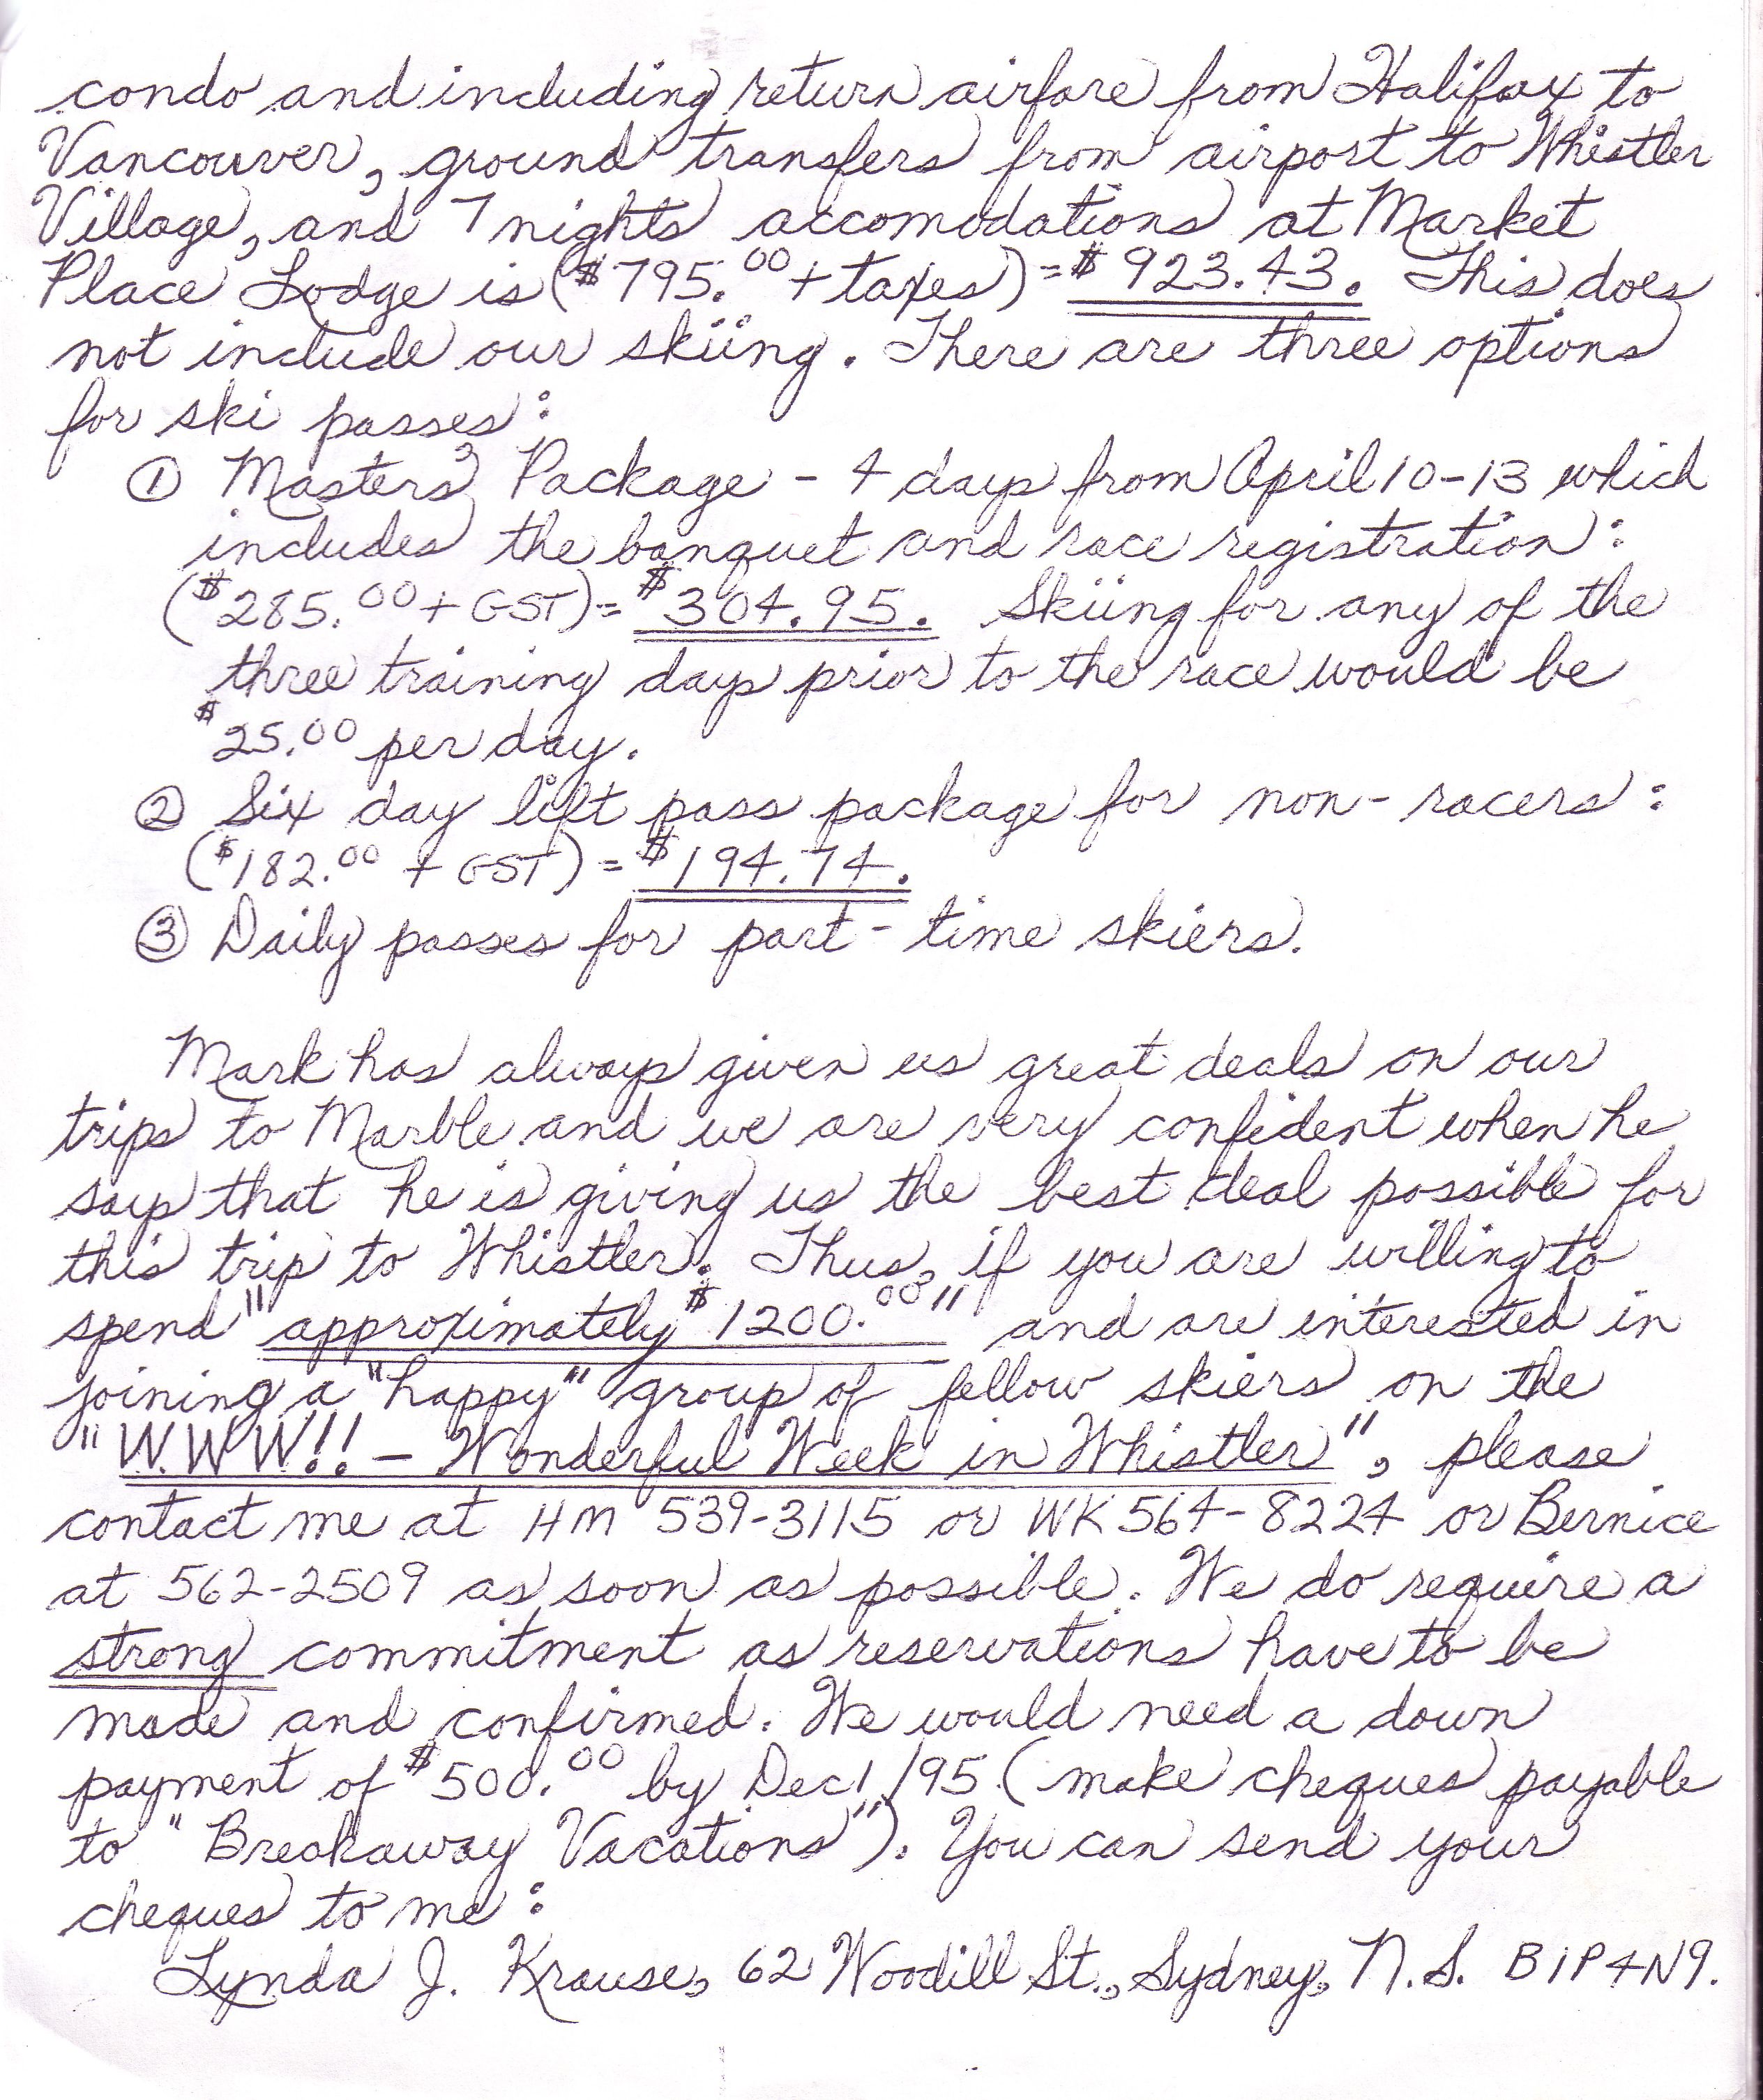 condo and including return airfare from Halifax to
Vancouver, ground transfers from airport to Whistler
Village, and 7 nights accomodations at Market
Place Lodge is ($795.00 + taxes) = $923.43. This does
not include our skiing. There are three options
for ski passes:
① Masters' Package - 4 days from April 10-13 which
includes the banquet and race registration:
($285.00 + GST) = $304.95. Skiing for any of the
three training days prior to the race would be
$25.00 per day.
② Six day lift pass package for non-racers:
($182.00 + GST) = $194.74.
③ Daily passes for part-time skiers.
Mark has always given us great deals on our
trips to Marble and we are very confident when he
says that he is giving us the best deal possible for
this trip to Whistler. Thus, if you are willing to
spend "approximately $1200.00" and are interested in
joining a "happy" group of fellow skiers on the
"W.W.W!! - Wonderful Week in Whistler", please
contact me at HM 539-3115 or WK 564-8224 or Bernice
at 562-2509 as soon as possible. We do require a
strong commitment as reservations have to be
made and confirmed. We would need a down
payment of $500.00 by Dec 1/95 (make cheques payable
to "Breakaway Vacations"). You can send your
cheques to me:
Lynda J. Krause, 62 Woodill St., Sydney, N.S. B1P 4N9.